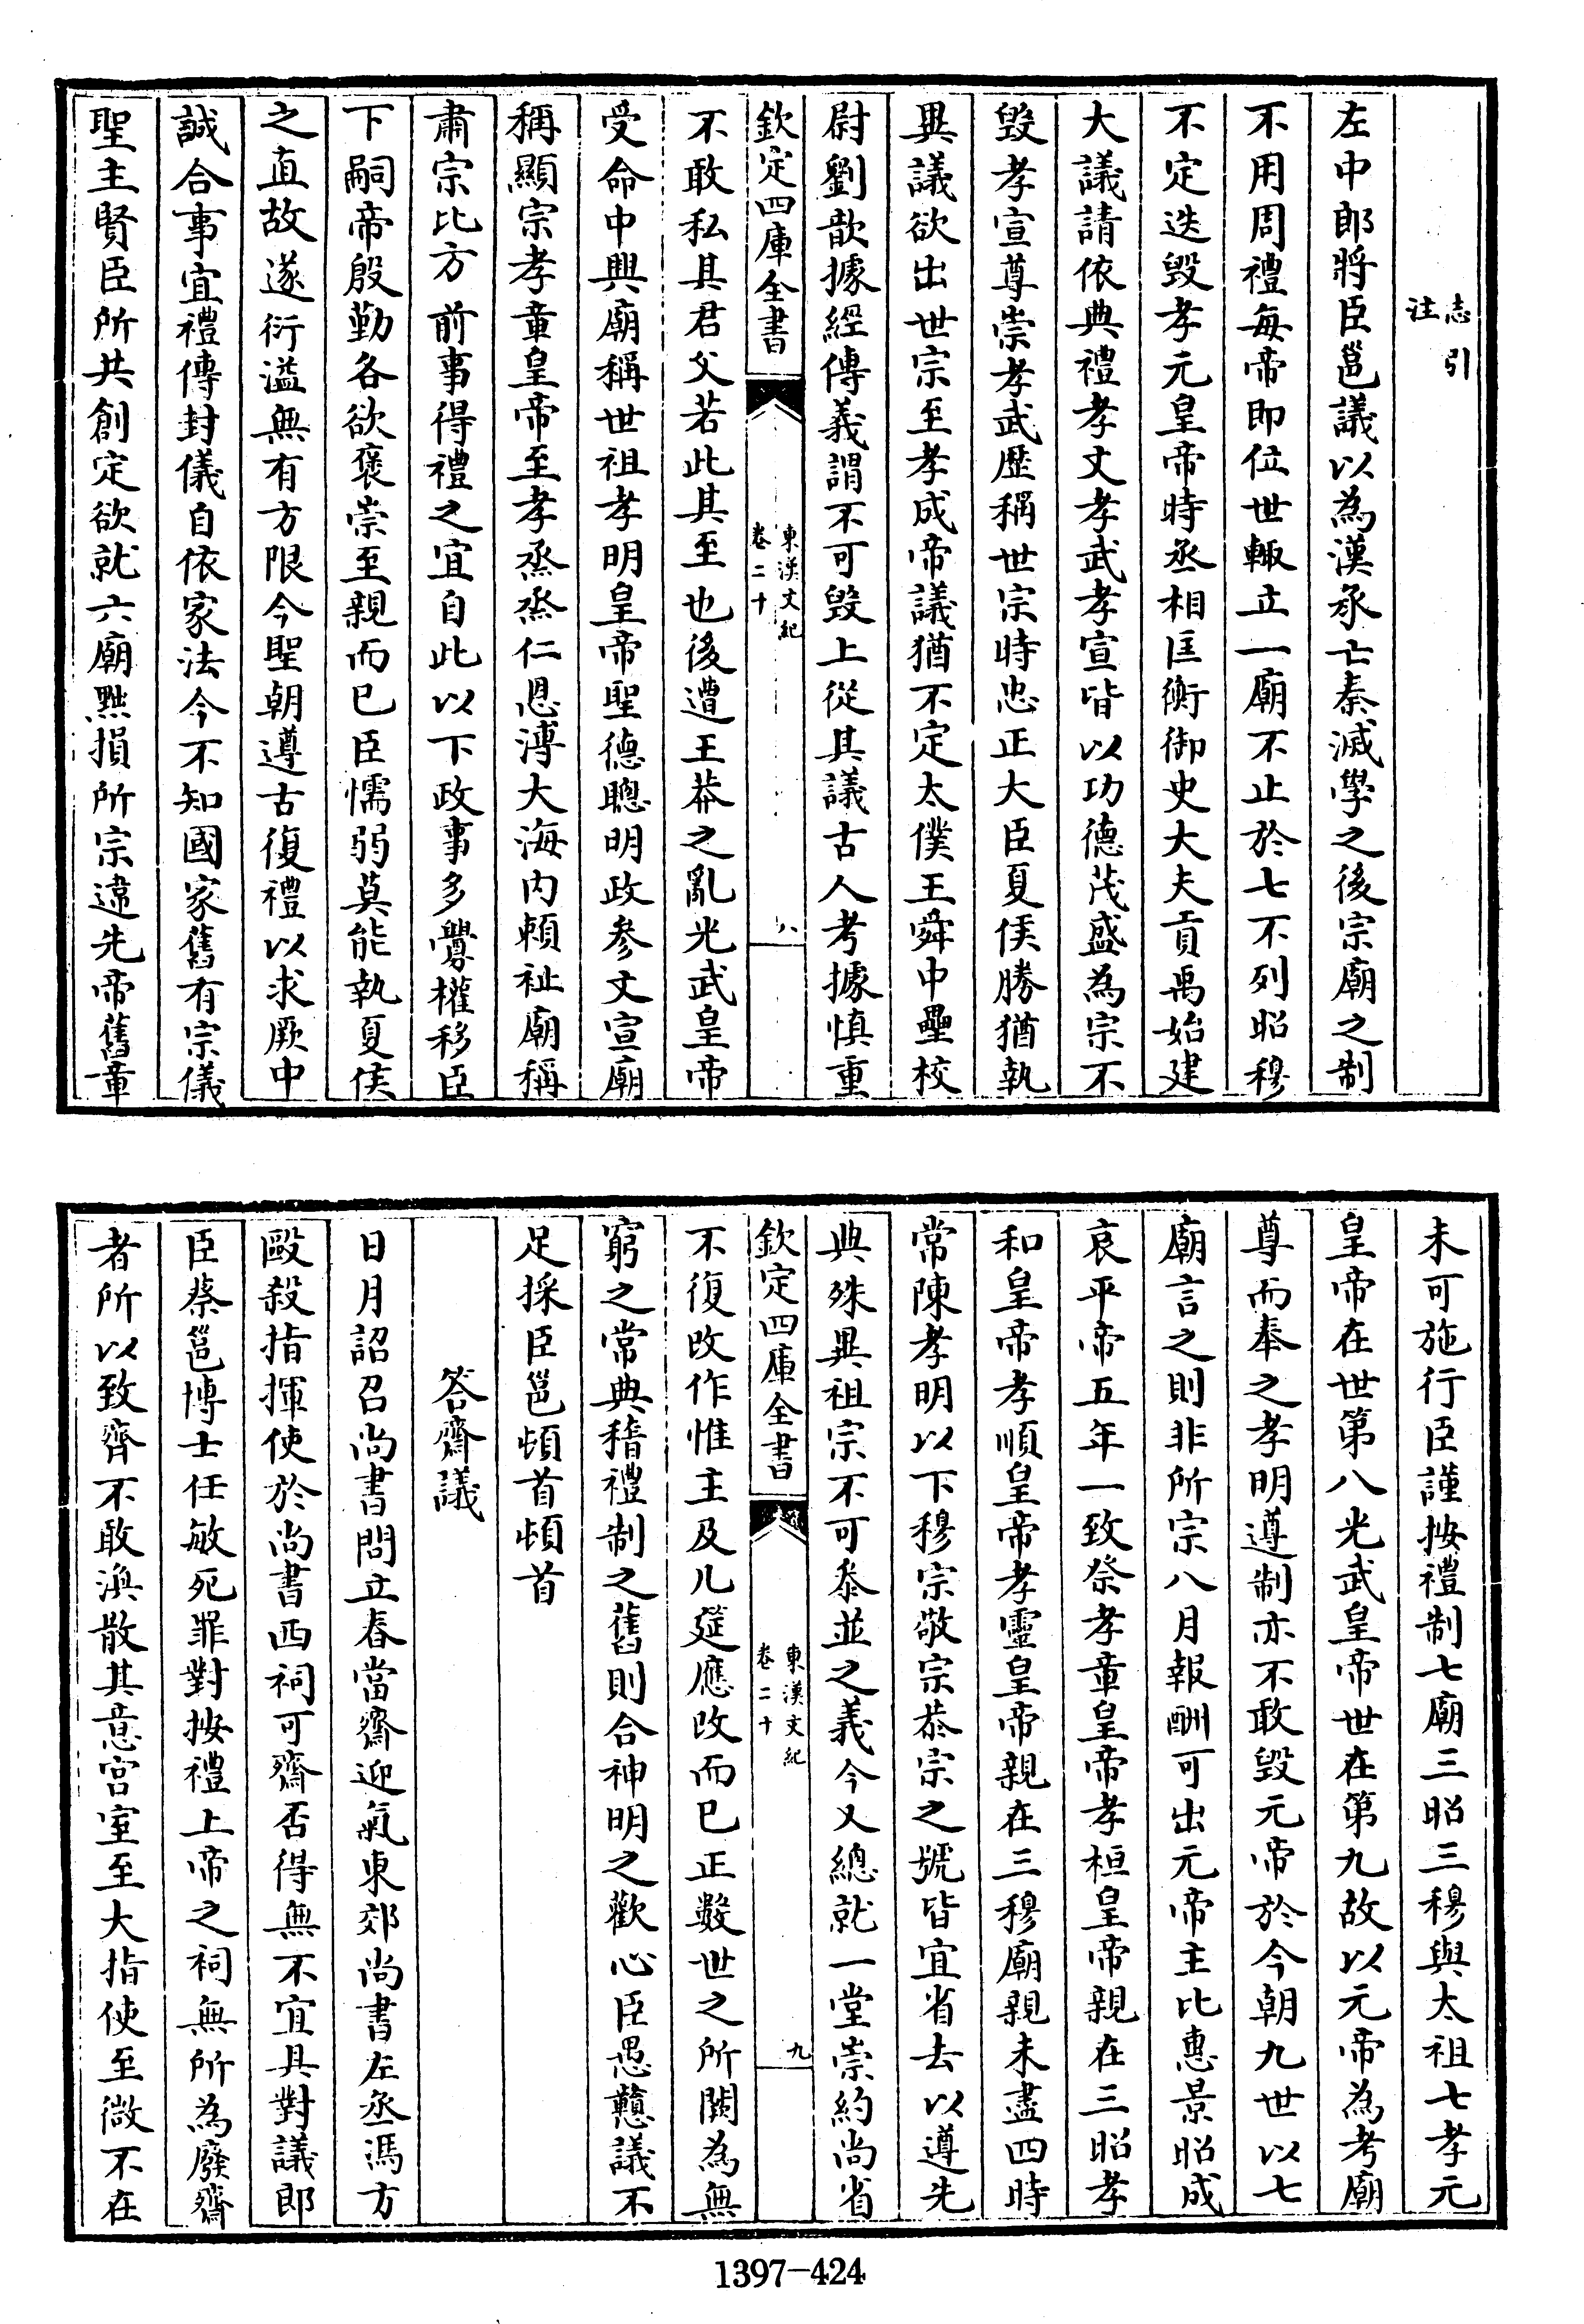 志引
注
左中郎將臣邕議以為漢承亡秦滅學之後宗廟之制
不用周禮每帝即位世輙立一廟不止於七不列昭穆
不定迭毀孝元皇帝時丞相匡衡御史大夫貢禹始建
大議請依典禮孝文孝武孝宣皆以功德茂盛為宗不
毀孝宣尊崇孝武歷稱世宗時忠正大臣夏侯勝猶執
異議欲出世宗至孝成帝議猶不定太僕王舜中壘校
尉劉歆據經傳義謂不可毀上從其議古人考據慎重
欽定四庫全書
東漢文紀
卷二十
八
不敢私其君父若此其至也後遭王莽之亂光武皇帝
受命中興廟稱世祖孝明皇帝聖德聰明政參文宣廟
稱顯宗孝章皇帝至孝烝烝仁恩溥大海內賴祉廟稱
肅宗比方前事得禮之宜自此以下政事多釁權移臣
下嗣帝殷勤各欲褒崇至親而已臣懦弱莫能執夏侯
之直故遂衍溢無有方限今聖朝遵古復禮以求厥中
誠合事宜禮傳封儀自依家法今不知國家舊有宗儀
聖主賢臣所共創定欲就六廟黙損所宗違先帝舊章
未可施行臣謹按禮制七廟三昭三穆與太祖七孝元
皇帝在世第八光武皇帝世在第九故以元帝為考廟
尊而奉之孝明遵制亦不敢毀元帝於今朝九世以七
廟言之則非所宗八月報酬可出元帝主比惠景昭成
哀平帝五年一致祭孝章皇帝孝桓皇帝親在三昭孝
和皇帝孝順皇帝孝靈皇帝親在三穆廟親未盡四時
常陳孝明以下穆宗敬宗恭宗之號皆宜省去以遵先
典殊異祖宗不可參並之義今又總就一堂崇約尚省
欽定四庫全書
東漢文紀
卷二十
九
不復改作惟主及几筵應改而已正數世之所闕為無
窮之常典稽禮制之舊則合神明之歡心臣愚戇議不
足採臣邕頓首頓首
答齋議
日月詔召尚書問立春當齋迎氣東郊尚書左丞馮方
毆殺指揮使於尚書西祠可齋否得無不宜具對議郎
臣蔡邕博士任敏死罪對按禮上帝之祠無所為廢齋
者所以致齊不敢渙散其意宫室至大指使至微不在
1397-424